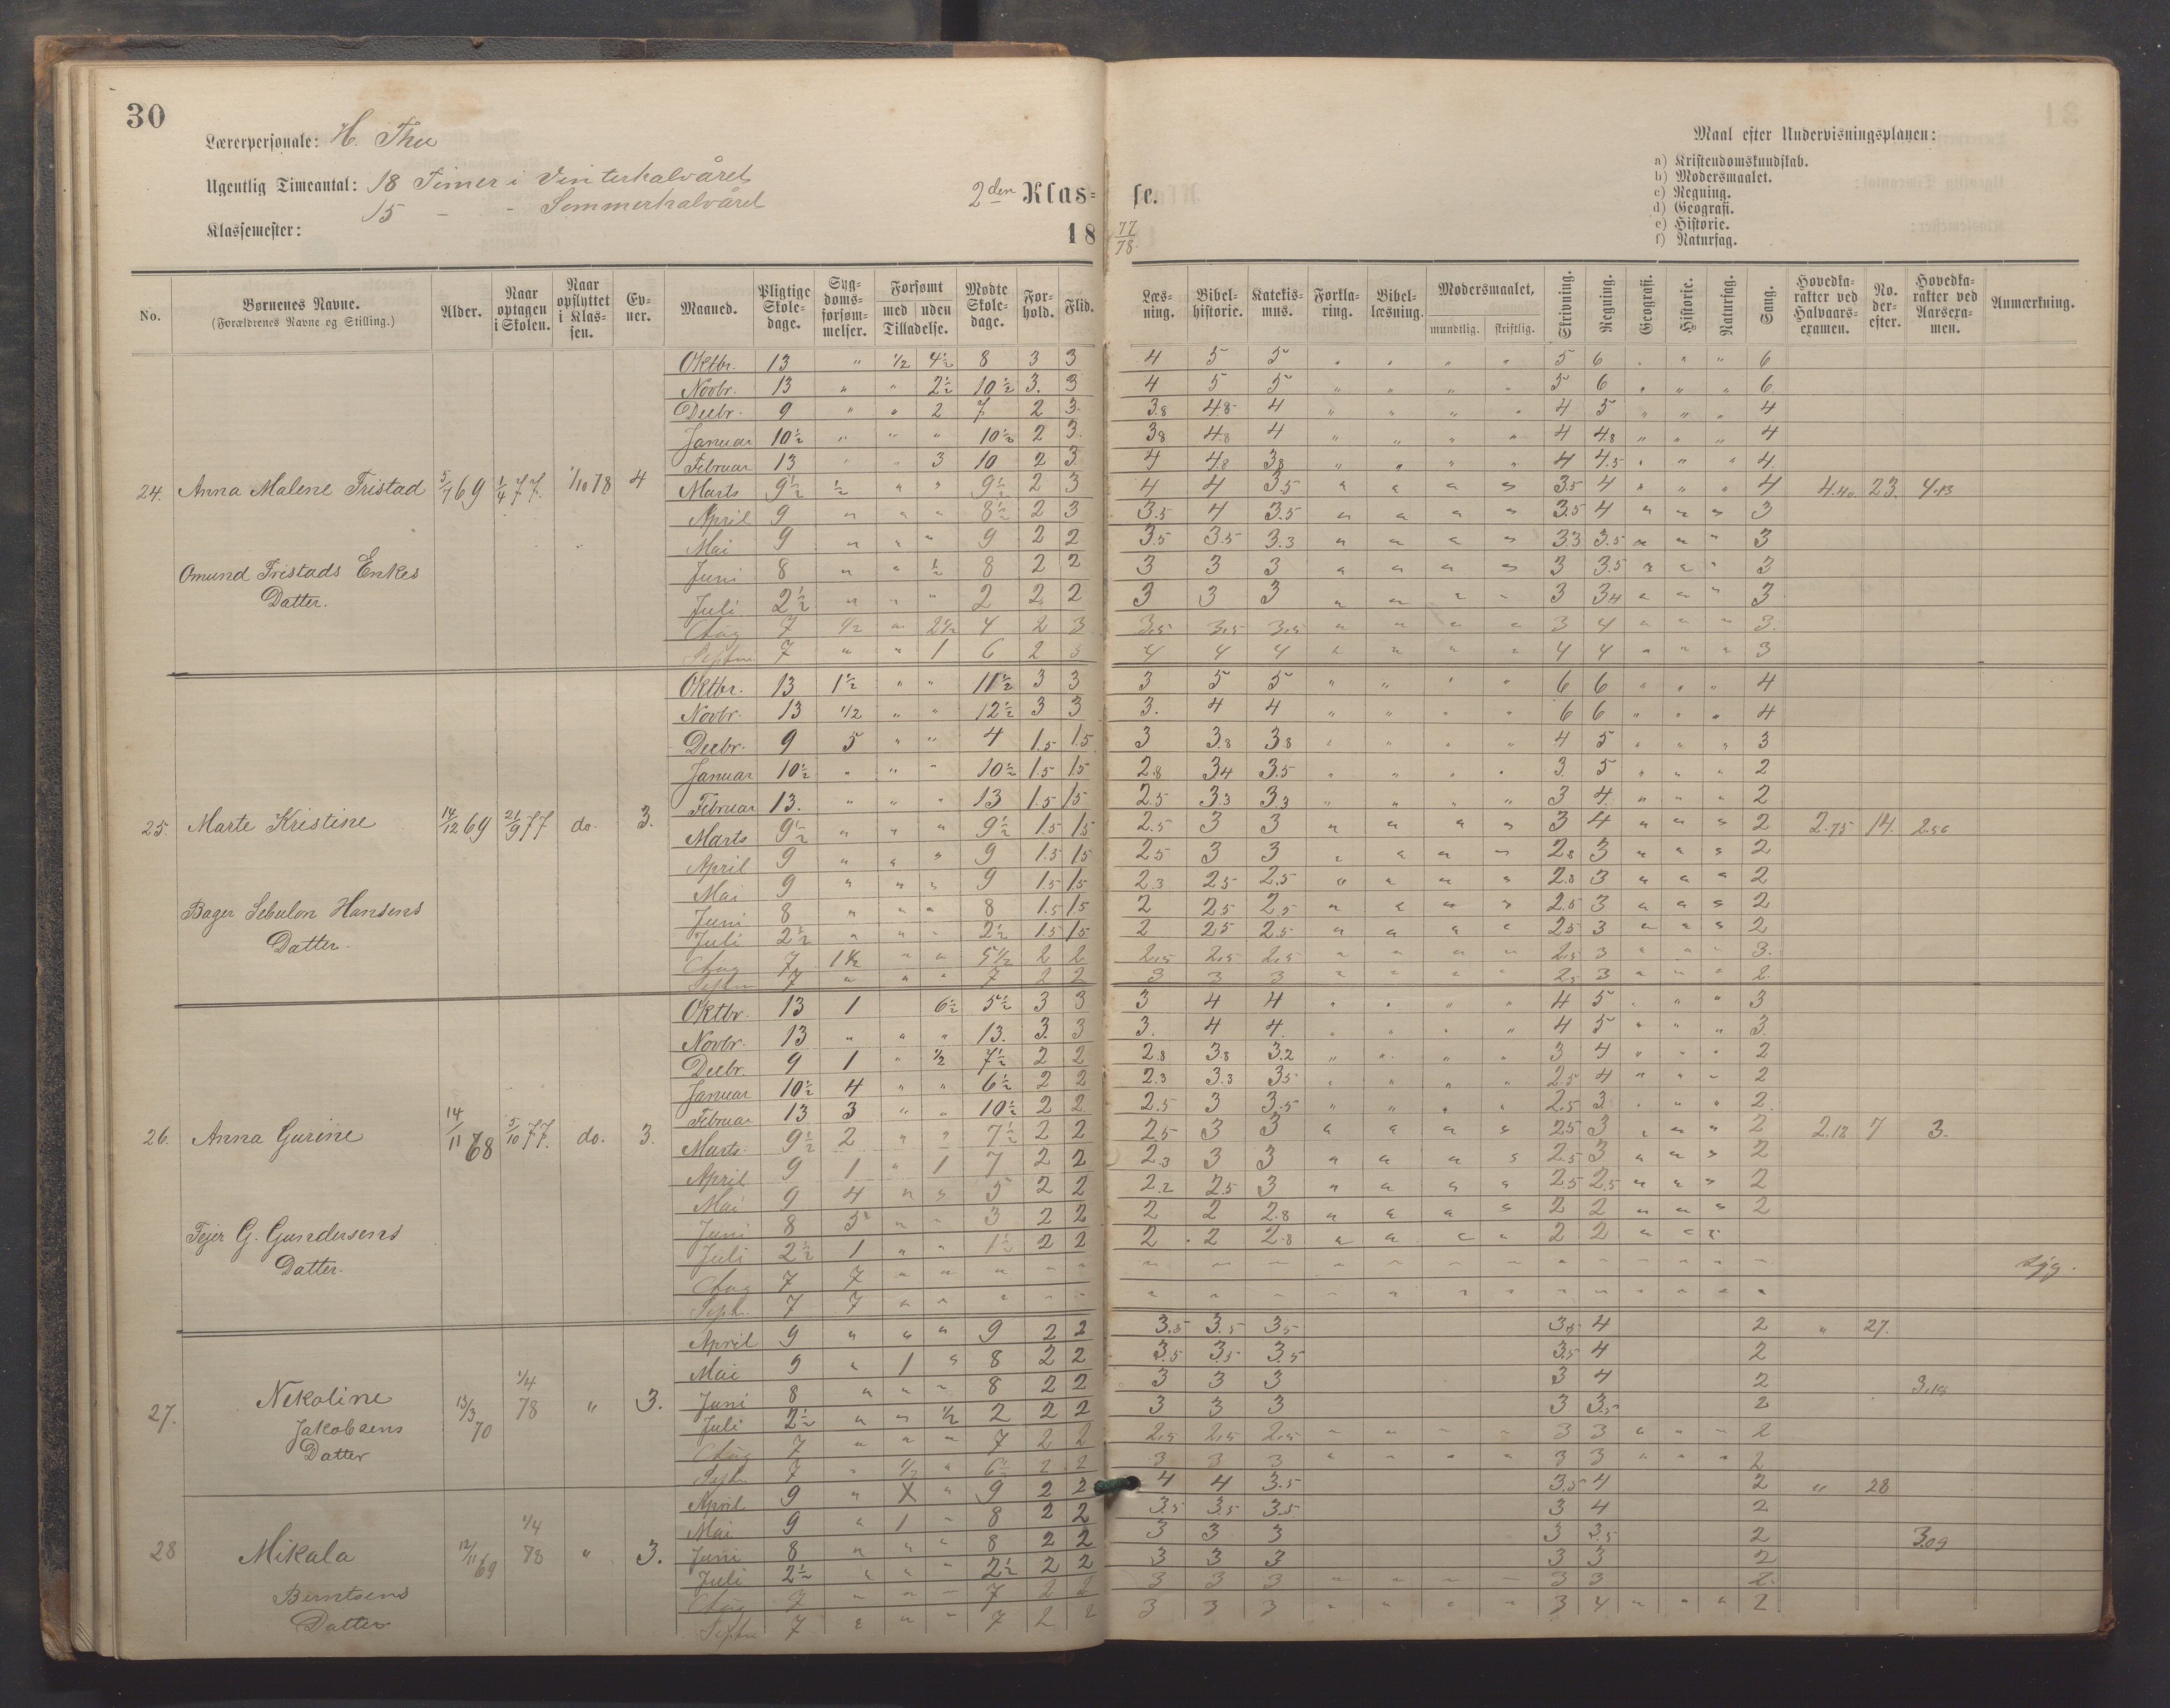 30
Lærerpersonale: H. Thu
Ugentlig Timeantal: 18 Timer i Vinterhalvåret
15 - - Sommerhalvåret
2den Klas- se.
Klassemester:
18 77/78
Maal efter Undervisningsplanen:
a) Kristendomskundskab.
b) Modersmaalet.
c) Regning.
d) Geografi.
e) Historie.
f) Naturfag.
No. Børnenes Navne. (Forældrenes Navne og Stilling.) Alder. Naar optagen i Skolen. Naar opflyttet i Klassen. Evner. Maaned. Pligtige Skoledage. Sygdomsforsømmelser. Forsømt med uden Tilladelse. Mødte Skoledage. Forhold. Flid. Læsning. Bibelhistorie. Katekismus. Forklaring. Bibellæsning. Modersmaalet, mundtlig. skriftlig. Skrivning. Regning. Geografi. Historie. Naturfag. Sang. Hovedkarakter ved Halvaarsexamen. No. derefter. Hovedkarakter ved Aarsexamen. Anmærkning.
Oktbr. 13 " 1/2 4 1/2 8 3 3 4 5 5 " " " " 5 6 " " " 6
Novbr. 13 " " 2 1/2 10 1/2 3. 3 4 5 5 " " " " 5 6 " " " 6
Decbr. 9 " " 2 7 2 3. 3.8 4.8 4 " " " " 4 5 " " " 4
Januar 10 1/2 " " " 10 1/2 2 3. 3.8 4.8 4 " " " " 4 4.8 " " " 4
Februar 13 " " 3 10 2 3. 4 4.8 3.8 " " " " 4 4.5 " " " 4
24. Anna Malene Tristad 5/7 69 1/4 77. 1/10 78 4 Marts 9 1/2 1/2 " " 9 1/2 2 3 4 4 3.5 " " " " 3.5 4 " " " 4 4.40 23. 4.13
April 9 " " " 8 1/2 2 3 3.5 4 3.5 " " " " 3.5 4 " " " 3
Mai 9 " " " 9 2 2 3.5 3.5 3.3 " " " " 3.3 3.5 " " " 3
Omund Tristads Enkes
Juni 8 " " 1/2 8 2 2 3 3 3 " " " " 3 3.5 " " " 3
Datter.
Juli 2 1/2 " " " 2 2 2 3 3 3 " " " " 3 3.4 " " " 3
Aug 7 1/2 " 2 1/2 4 2 3 3.5 3.5 3.5 " " " " 3 4 " " " 3.
Septbr 7 " " 1 6 2 3 4 4 4 " " " " 4 4 " " " 3
Oktbr. 13 1 1/2 " " 11 1/2 3 3 3 5 5 " " " " 6 6 " " " 4
Novbr. 13 1/2 " " 12 1/2 3 3 3. 4 4 " " " " 6 6 " " " 4
Decbr. 9 5 " " 4 1.5 1.5 3 3.8 3.8 " " " " 4 5 " " " 3
Januar 10 1/2 " " " 10 1/2 1.5 1.5 2.8 3.4 3.5 " " " " 3. 5 " " " 2
Februar 13. " " " 13 1.5 1.5 2.5 3.3 3.3 " " " " 3 4. " " " 2
25. Marte Kristine 14/12 69 21/9 77 do. 3. Marts 9 1/2 " " " 9 1/2 1.5 1.5 2.5 3 3 " " " " 3 4 " " " 2 2.75 14. 2.56
April 9 " " " 9 1.5 1.5 2.5 3 3 " " " " 2.8 3 " " " 2
Mai 9 " " " 9 1.5 1.5 2.3 2.5 2.5 " " " " 2.8 3 " " " 2
Bager Sebulon Hansens
Juni 8 " " " 8 1.5 1.5 2 2.5 2.5 " " " " 2.5 3 " " " 2
Datter.
Juli 2 1/2 " " " 2 1/2 1.5 1.5 2 2.5 2.5 " " " " 2.5 3 " " " 2
Aug 7 1 1/2 " " 5 1/2 2 2 2.5 2.5 2.5 " " " " 2.5 3 " " " 3.
Septbr 7 " " " 7 2 2 3 3 3 " " " " 2.5 3 " " " 2.
Oktbr. 13 1 6 1/2 5 1/2 3 3 3 4 4 " " " " 4 5 " " " 3
Novbr. 13 " " " 13. 3. 3 3. 4 4. " " " " 4 5 " " " 3.
Decbr. 9 1 " 1/2 7 1/2 2 2 2.8 3.8 3.2 " " " " 3 4 " " " 2
Januar 10 1/2 4 " " 6 1/2 2 2 2.3 3.3 3.5 " " " " 2.5 4 " " " 2
Februar 13 3 " " 10 1/2 2 2 2.5 3 3.5 " " " " 2.5 3. " " " 2.
26. Anna Gurine 14/11 68 5/10 77. do. 3. Marts. 9 1/2 2 " " 7 1/2 2 2 2.5 3 3 " " " " 2.5 3 " " " 2 2.12 7 3.
April 9 1 " 1 7 2 2 2.3 3 3 " " " " 2.5 3 " " " 2
Mai 9 4 " " 5 2 2 2.2 2.5 3 " " " " 2.5 2.5 " " " 2
Juni 8 5 " " 3 2 2 2 2 2.8 " " " " 2 2 " " " 2
Tejer G. Gundersens
Juli 2 1/2 1 " " 1 1/2 2 2 2 2 2.8 " " " " 2 2 " " "
Datter.
Aug 7 7 " " " " " " " " " " " " " " " " " " syg.
Septr. 7 7 " " " " " " " " " " " " " " " " " "
April 9 " " " 9 2 2 3.5 3.5 3.5 3.5 4 2 " 27.
Mai 9 " 1 " 8 2 2 3.5 3.5 3.5 3.5 4 2
27. Nekoline 13/3 70 1/4 78 " 3. Juni 8 " " " 8 2 2 3 3 3 3 4 2 3.18
Jakobsens
Juli 2 1/2 " " 1/2 2 2 2 3 3 3 3 3.5 2
Datter
Aug 7 " " " 7 2 2 2.5 2.5 2.5 " " " " 3 3 " " " 2
Septbr 7 " 1/2 " 6 1/2 2 2 3 3 3 " " " " 3 3 " " " 2
April 9 " X " 9 2 2 4 4 3.5 3.5 4 2 " 28
Mai 9 " 1 " 8 2 2 3.5 3.5 3.5 3 4 2
28 Mikala 12/11 69 1/4 78 " 3. Juni 8 " " " 8 2 2 3 3 3 3 3.5 2 3.09
Juli 2 1/2 " " " 2 1/2 2 2 3 3 3 3 3 2
Berntsens
Aug 7 " " " 7 2 2 3 3 3 " " " " 3 3 2.
Datter
Septbr 7 " " " 7 2 2 3 3 3 " " " " 3 4 " " " 2